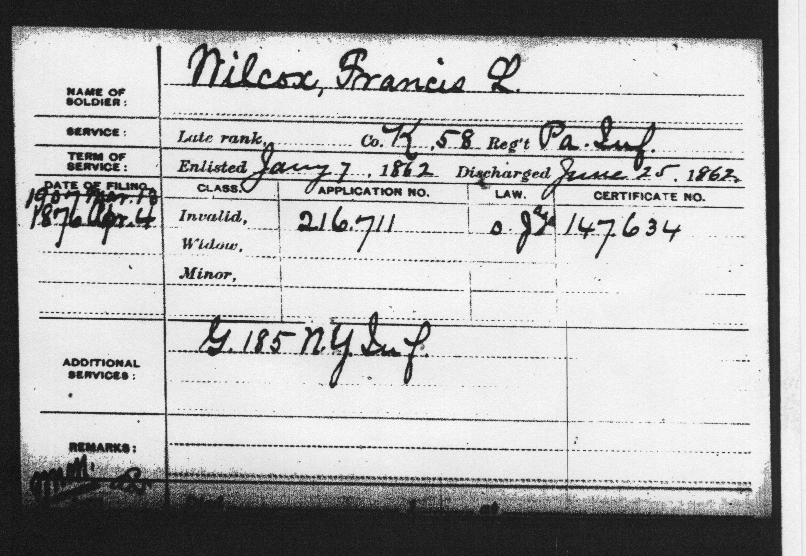 Wilcox, Francis L.
NAME OF
SOLDIER:
SERVICE: Late rank, Co. K, 58 Reg't Pa. Inf.
TERM OF
SERVICE: Enlisted Jany 7, 1862 Discharged June 25, 1862.
DATE OF FILING. CLASS. APPLICATION NO. LAW. CERTIFICATE NO.
1907 Mar. 18
1876 Apr. 4 Invalid, 216.711 147.634
Widow,
Minor,
G. 185 N.Y. Inf.
ADDITIONAL
SERVICES:
REMARKS: